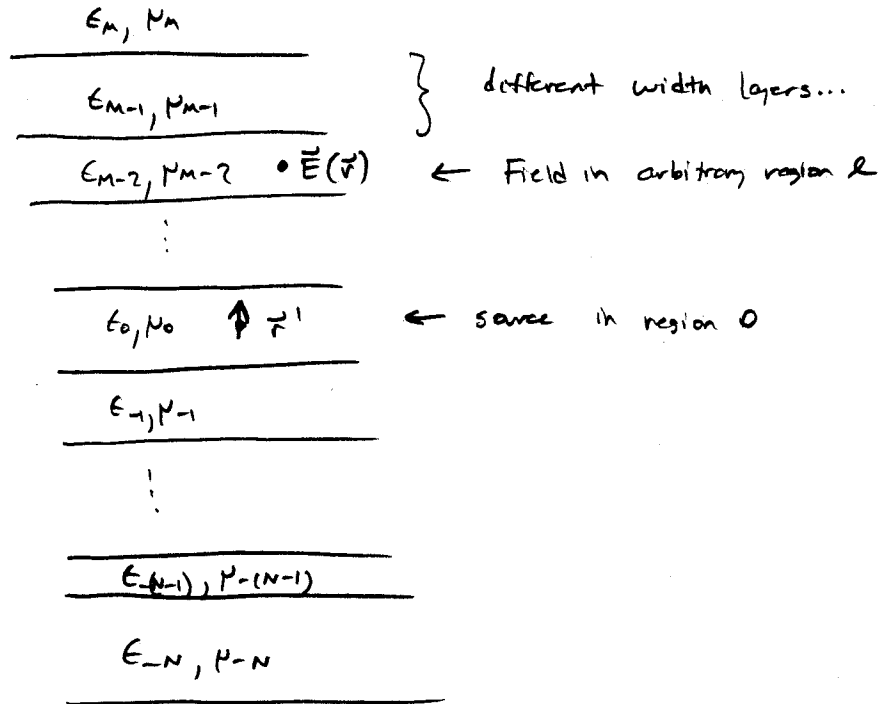 ϵ_M, μ_M
ϵ_{M-1}, μ_{M-1} } different width layers...
ϵ_{M-2}, μ_{M-2} • E⃗(r⃗) ← Field in arbitrary region ℓ
⋮
ϵ_0, μ_0 r⃗' ← source in region 0
ϵ_{-1}, μ_{-1}
⋮
ϵ_{-(N-1)}, μ_{-(N-1)}
ϵ_{-N}, μ_{-N}